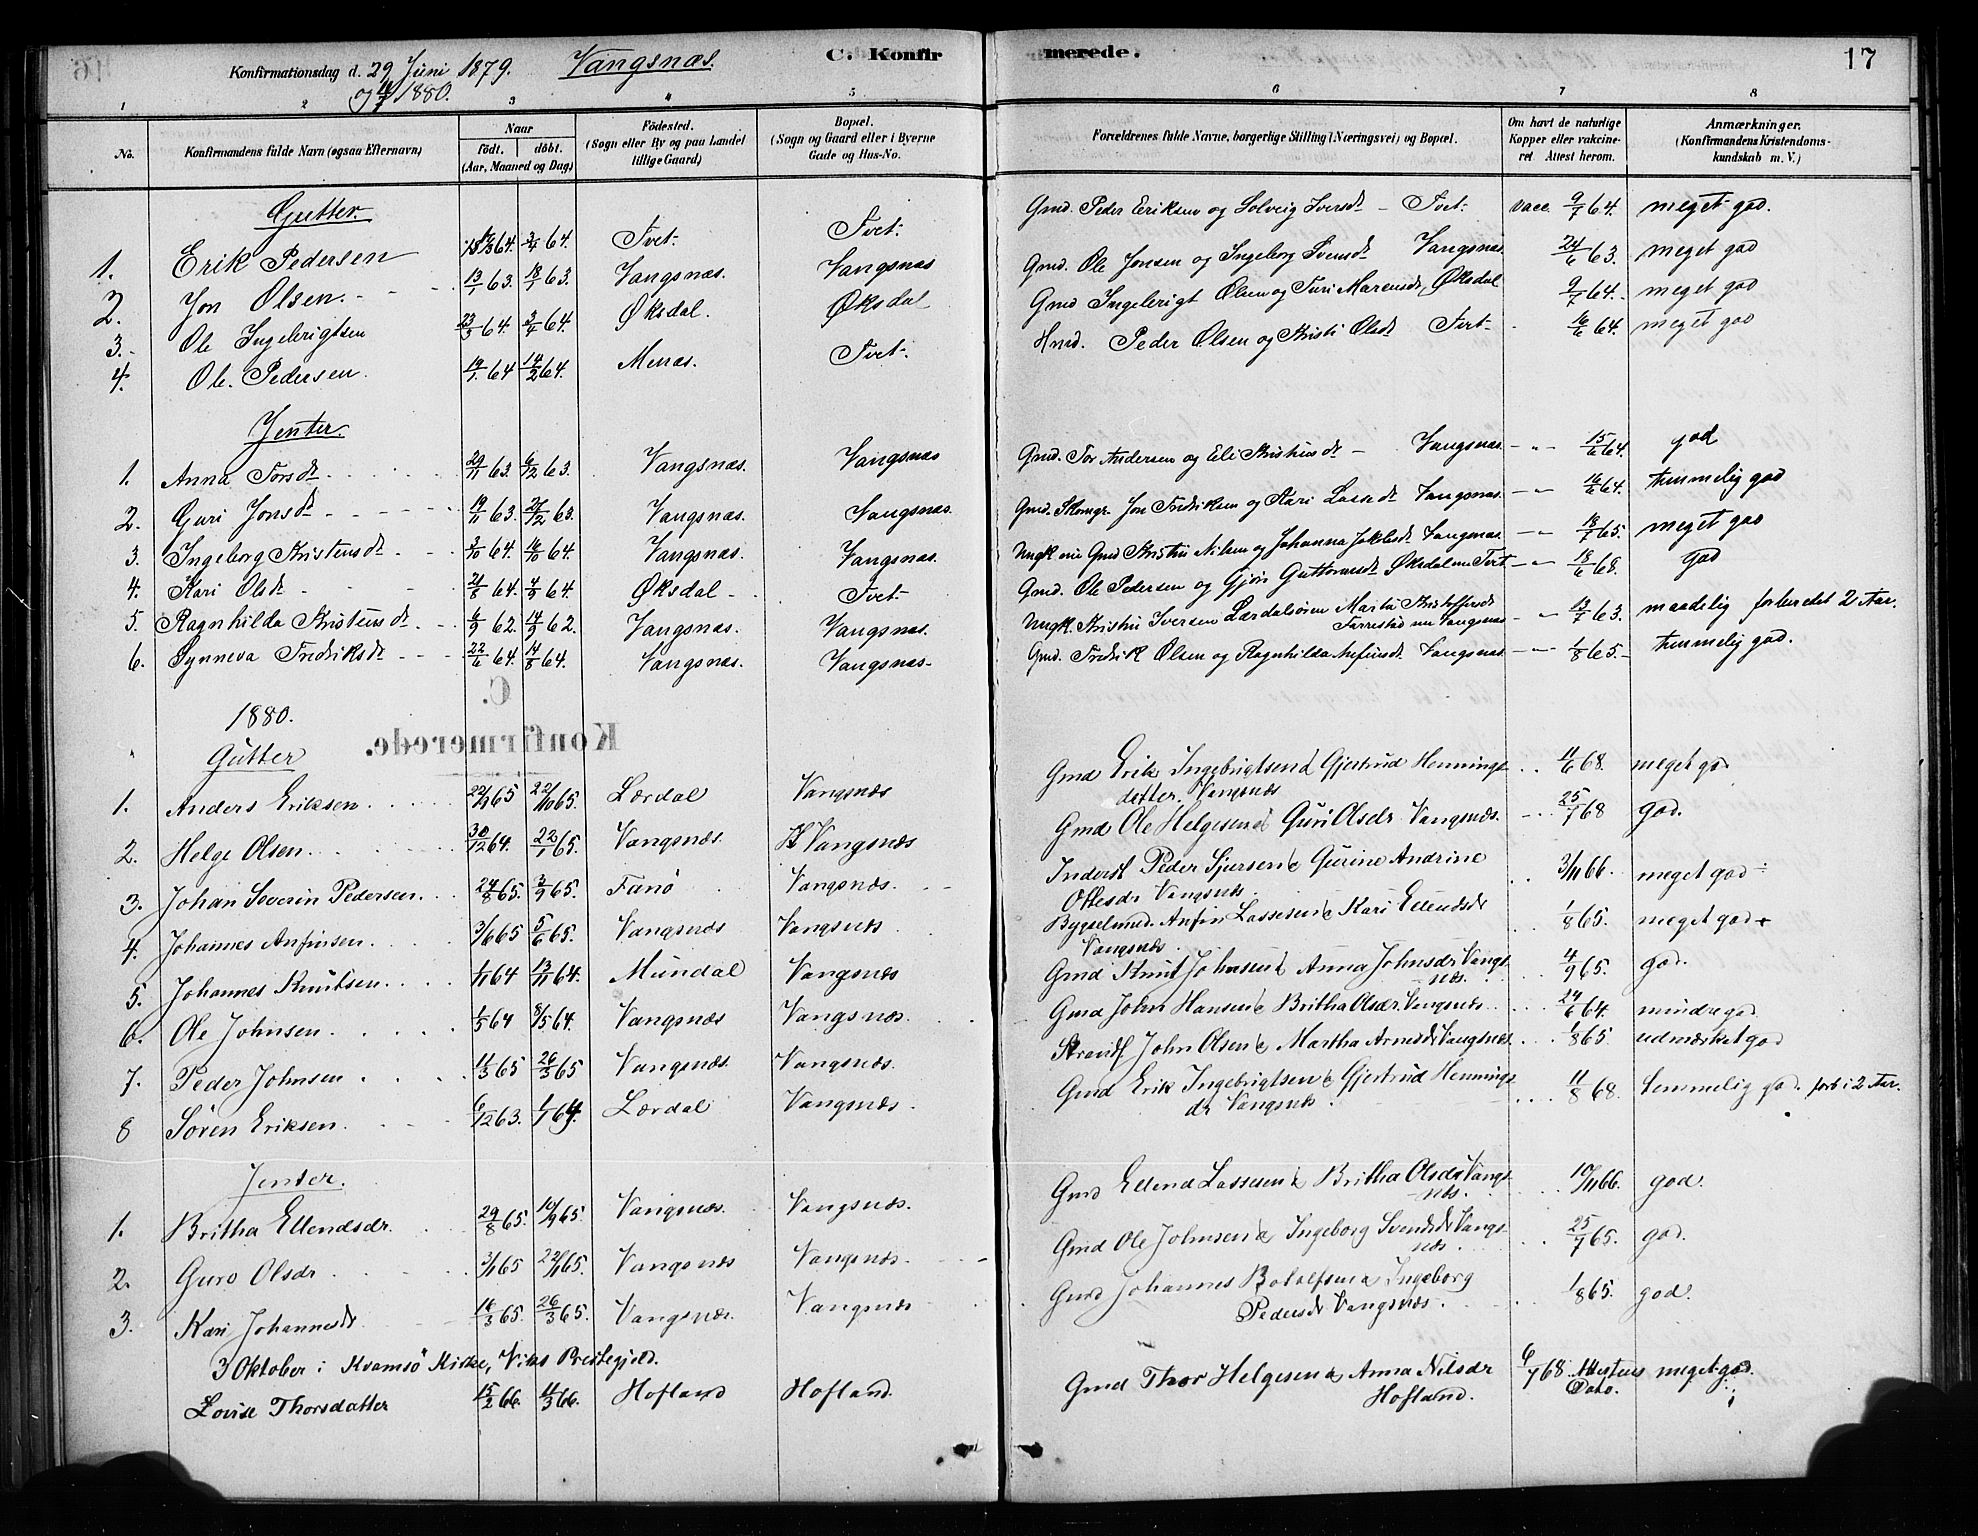 Konfirmationsdag d. 29 Juni 1879. Vangsnæs. C. Konfirmerede. 17
og 11/7 1880.
1 2 3 4 5 6 7 8
No. Konfirmandens fulde Navn (ogsaa Efternavn) Naar født. døbt. (Aar, Maaned og Dag) Fødested. (Sogn eller By og paa Landet tillige Gaard) Bopæl. (Sogn og Gaard eller i Byerne Gade og Hus-No. Forældrenes fulde Navne, borgerlige Stilling (Næringsvei) og Bopæl. Om havt de naturlige Kopper eller vakcineret Attest herom. Anmærkninger. (Konfirmandens Kristendomskundskab m. V.)
Gutter.
1. Erik Pedersen 64. 3/4 64. Tvet. Tvet. Gmd. Peder Eriksen og Solveig Iversdt - Tvet. vacc. 9/7 64. meget god.
2. Jon Olsen. 13/1 63. 18/1 63. Vangsnæs. Vangsnæs Gmd. Ole Jonsen og Ingeborg Svensdt Vangsnæs. 24/6 63. meget god
3. Ole Ingebrigtsen 23/3 64. 3/4 64. Øksdal. Øksdal Gmd Ingebrigt Olsen og Turi Øksdal 9/7 64. meget god
4. Ole Pedersen. 19/1 64 14/2 64. Menæs. Tvet. Hmd. Peder Olsen og Kristi Olsdt Tvet 16/6 64. meget god
Jenter.
1. Anna Torsdt 29/11 63. 6/12 63. Vangsnæs. Vangsnæs Gmd. Tor Andersen og Eli Kristensdt - Vangsnæs. 15/6 64. god
2. Guri Jonsdt 19/11 63. 27/12 63. Vangsnæs. Vangsnæs. Gmd. Skomgr. Jon Fredriksen og Kari Lassedt Vangsnæs. 16/6 64. temmelig god
3. Ingeborg Kristensdt 3/10 64. 16/10 64. Vangsnæs. Vangsnæs. Ungk. nu Gmd Kristen Nilsen og Johanna Vangsnæs. 18/7 65. meget god
4. Kari Olsdt 21/8 64. 4/9 64. Øksdal Tvet Gmd. Ole Pedersen og Gjøri Guttormsdt Øksdal nu Tvet 18/6 68. god
5. Ragnhilda Kristensdt 6/9 62. 14/9 62. Vangsnæs. Vangsnæs. Ungk. Kristen Iversen Lærdalsøren Marta Kristoffersdt nu Vangsnæs 12/7 63. maadelig forberedet 2 Aar.
6. Synneva Fredriksdt 22/6 64. 14/8 64. Vangsnæs. Vangsnæs. Gmd. Fredrik Olsen og Ragnhilda Vangsnæs. 1/8 65. temmelig god.
1880.
Gutter
1. Anders Eriksen 22/9 65 22/10 65. Lærdal Vangsnæs Gmd Erik Ingebrigtsen & Gjertrud Henningsdatter. Vangsnæs 11/6 68. meget god
2. Helge Olsen. 30/12 64. 22/1 65. Vangsnæs Vangsnæs Gmd Ole Helgesen & Guri Olsdr Vangsnæs. 25/7 68 god.
3. Johan Severin Pedersen. 27/8 65. 3/9 65. Fanø Vangsnæs. Inderst Peder Sjursen & Gurine Andrine Ottesdr Vangsnæs. 3/11 66. meget god
4. Johannes Anfinsen. 3/6 65 5/6 65. Vangsnæs Vangsnæs Bygselmd. Anfin Lassesen & Kari Ellendsdr Vangsnæs. 1/8 65. meget god
5. Johannes Knutsen 1/11 64 13/11 64. Mundal Vangsnæs Gmd Knut Johnsen & Anna Johnsdr Vangsnæs. 4/9 65. god.
6. Ole Johnsen. 1/5 64 8/5 64. Vangsnæs Vangsnæs Gmd John Hansen & Britha Olsdr. Vangsnæs 24/6 64. mindre god.
7. Peder Johnsen 11/3 65 26/3 65 Vangsnæs Vangsnæs. Strandf John Olsen & Martha Arnesdr Vangsnæs 1/8 65. udmærket god
8 Søren Eriksen. 6/12 63. 1/1 64. Lærdal Vangsnæs. Gmd Erik Ingebrigtsen & Gjertrud Henningsdr Vangsnæs. 11/8 68. temmelig god. forb i 2 Aar.
Jenter.
1. Britha Ellendsdr. 29/8 65. 10/9 65. Vangsnæs. Vangsnæs. Gmd Ellend Lassesen & Britha Olsdr Vangsnæs. 10/11 66. god.
2. Guro Olsdr 3/1 65 22/1 65. Vangsnæs Vangsnæs. Gmd Ole Johnsen & Ingeborg Svendsdr Vangsnæs 25/7 65. god.
3. Kari Johannesdr 16/3 65. 26/3 65. Vangsnæs. Vangsnæs Gmd Johannes Botolfsen & Ingeborg Pedersdr Vangsnæs. 1/8 65. god.
3 Oktober i Kvamsø Kirke, Viks Præstegjeld.
Lovise Thorsdatter 15/2 66. 11/3 66. Hofland Hofland. Gmd Thor Helgesen & Anna Nilsdr Hofland. 6/7 68. Attestens Dato. meget god.